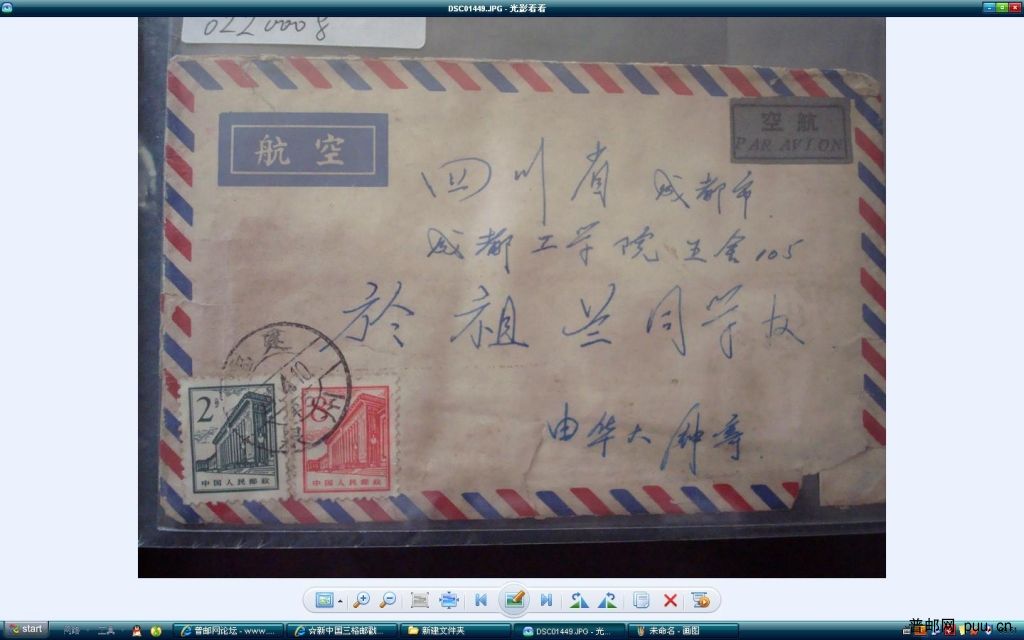 DSC01449.JPG - 光影看看
0220008
航空
空航
PAR AVION
四川省 成都市
成都工学院 五舍105
於祖兰同学收
由华大钟寄
2
8
中国人民邮政
中国人民邮政
start
普邮网论坛 - www....
☆新中国三格邮戳...
新建文件夹
DSC01449.JPG - 光...
未命名 - 画图
普邮网 puu.cn